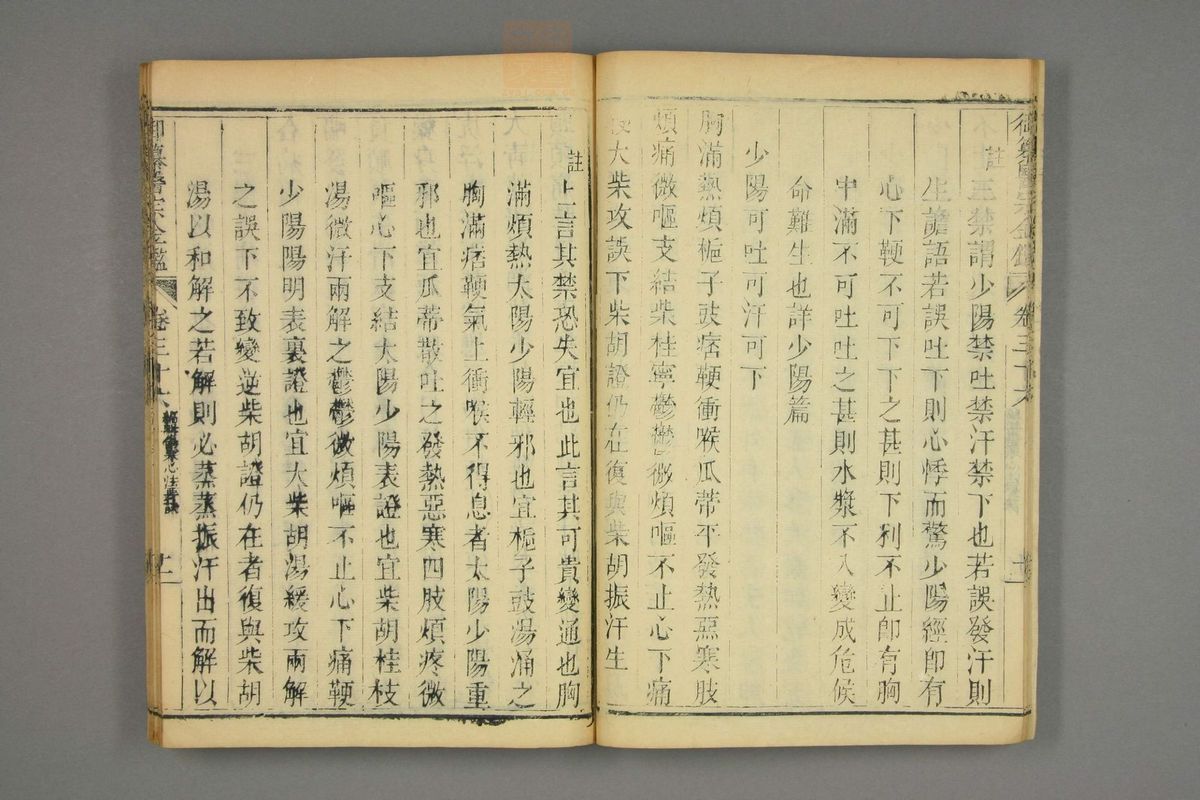 註三禁謂少陽禁吐禁汗禁下也若誤發汗則
生譫語若誤吐下則心悸而驚少陽經即有
心下鞕不可下下之甚則下利不止即有胸
中滿不可吐吐之甚則水漿不入變成危候
命難生也詳少陽篇
少陽可吐可汗可下
胸滿熱煩梔子豉痞鞕衝喉瓜蒂平發熱惡寒肢
煩痛微嘔支結柴桂寧鬱鬱微煩嘔不止心下痛
大柴攻誤下柴胡證仍在復與柴胡振汗生
註上言其禁恐失宜也此言其可貴變通也胸
滿煩熱太陽少陽輕邪也宜梔子豉湯涌之
胸滿痞鞕氣上衝喉不得息者太陽少陽重
邪也宜瓜蒂散吐之發熱惡寒四肢煩疼微
嘔心下支結太陽少陽表證也宜柴胡桂枝
湯微汗兩解之鬱鬱微煩嘔不止心下痛鞕
少陽陽明表裏證也宜大柴胡湯緩攻兩解
之誤下不致變逆柴胡證仍在者復與柴胡
湯以和解之若解則必蒸蒸振汗出而解以
御纂醫宗金鑑 卷三十六